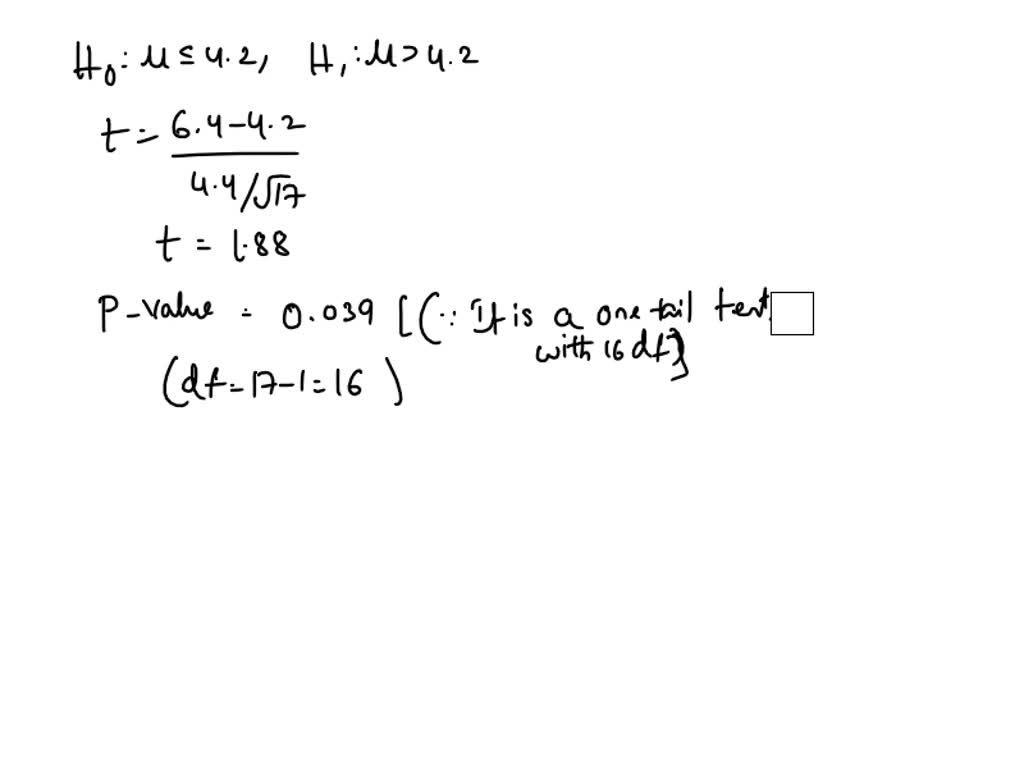 H₀: μ ≤ 4.2, H₁: μ > 4.2
t = 6.4-4.2
4.4/√17
t = 1.88
P-value = 0.039 [(∵ It is a one tail test
with 16 df]
(df = 17-1 = 16)